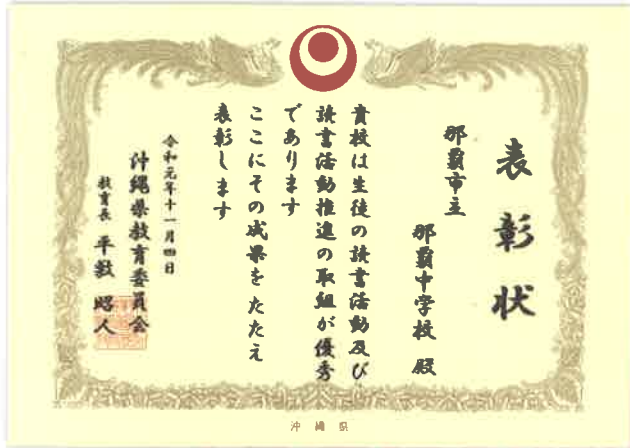 表彰状
那覇市立
那覇中学校 殿
貴校は生徒の読書活動及び
読書活動推進の取組が優秀
であります
ここにその成果をたたえ
表彰します
令和元年十一月四日
沖縄県教育委員会
教育長 平敷 昭人
沖縄県